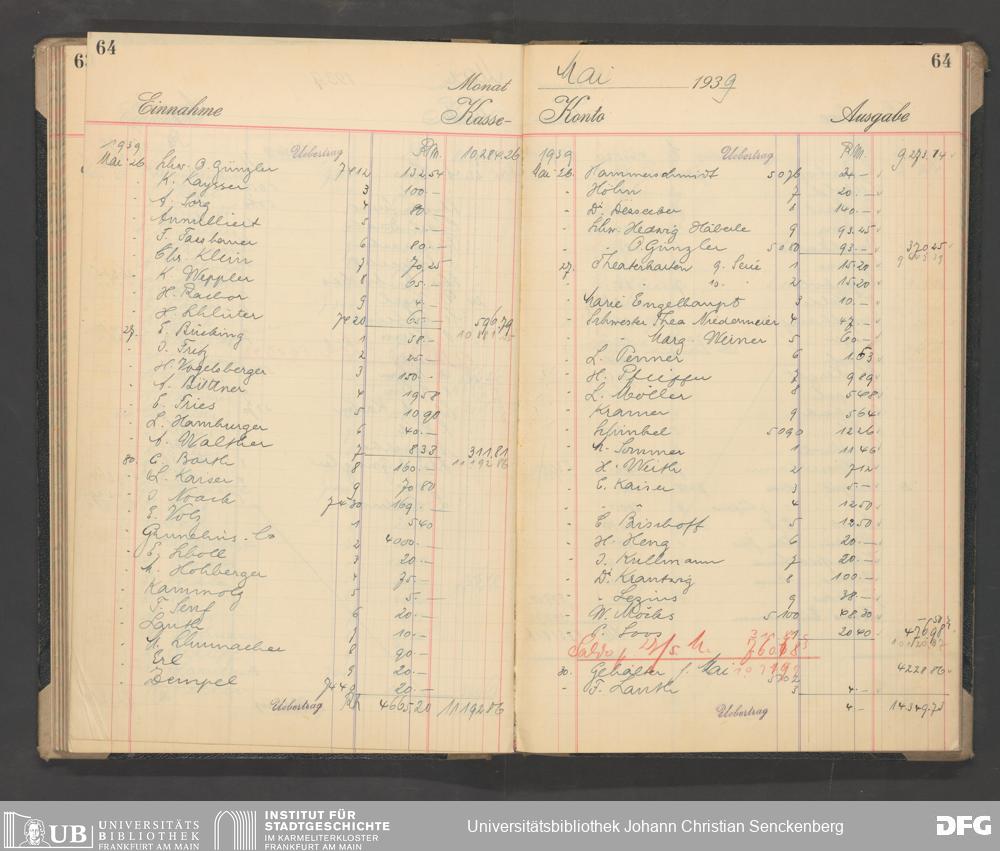 64
Monat
Einnahme Kasse-
1939 Uebertrag RM. 10,284.26
Mai 26. Schw. O. Günzler 7412 132 54
" K. Kaysser 3 100.—
" A. Sorg 4 80.—
" 5 —.—
" F. 6 80.—
" Chr. Klein 7 70,25
" K. Weppler 8 65.—
" H. Bachor 9 4.—
" H. Schlüter 7420 65.— 596,79
27. E. Bücking 1 58.—
" O. Fritz 2 25.—
" H. Vogelsberger 3 150.—
" A. Bittner 4 19 58
" E. Fries 5 10 90
" L. Hamburger 6 40.—
" A. Walther 7 8 33 311,81
30. C. Barth 8 160.— 11 192 86
" L. Karser 9 70 80
" O. Noack 7430 169.—
" E. Volz 1 5 40
" Grunelius & Co 2 4000.—
" E. Scholl 3 20.—
" A. Hohberger 4 75.—
" 5 5.—
" F. Senf 6 20.—
" Lauth 7 10.—
" A. Schumacher 8 90.—
" Erl 9 20.—
" Dempel 7440 20.—
Uebertrag RM 4665,20 11192 86
64
Mai 1939
Konto Ausgabe
1939 Uebertrag RM. 9 273.14
Mai 26. Hammerschmidt 5076 24.—
" Höhn 7 20.—
" Dr. 8 140.—
" Schw. Hedwig Häberle 9 93.45
" " O. Günzler 5080 93.— 370,45
27. Theaterkarten 9. Serie 1 15.20
" " 10. " 2 15.20
" Marie Engelhaupt 3 10.—
" Schwester Thea Niedermeier 4 47.—
" " Marg. Weiner 5 60.—
" L. Penner 6 1.63
" H. Pfeiffer 7 9 89
" L. Möller 8 5 48
" Kramer 9 5 64
" Schimbel 5090 12 26
" A. Sommer 1 11 46
" H. Werth 2 7 12
" E. Kaiser 3 5.—
" " 4 12 50
" E. Bischoff 5 12 50
" H. Heng 6 20.—
" J. Kullmann 7 20.—
" Dr. Krantwig 8 100.—
" " Lezius 9 38.—
" W. Möbs 5100 48.30
" Loos 1 20 40 476,98
Saldo p. 27/5 M.
30. Gehälter f. Mai 5102 4228.86
" F. Lauth 3 4.—
Uebertrag 4 — 14349.73
UB UNIVERSITÄTS
BIBLIOTHEK
FRANKFURT AM MAIN
INSTITUT FÜR
STADTGESCHICHTE
IM KARMELITERKLOSTER
FRANKFURT AM MAIN
Universitätsbibliothek Johann Christian Senckenberg
DFG